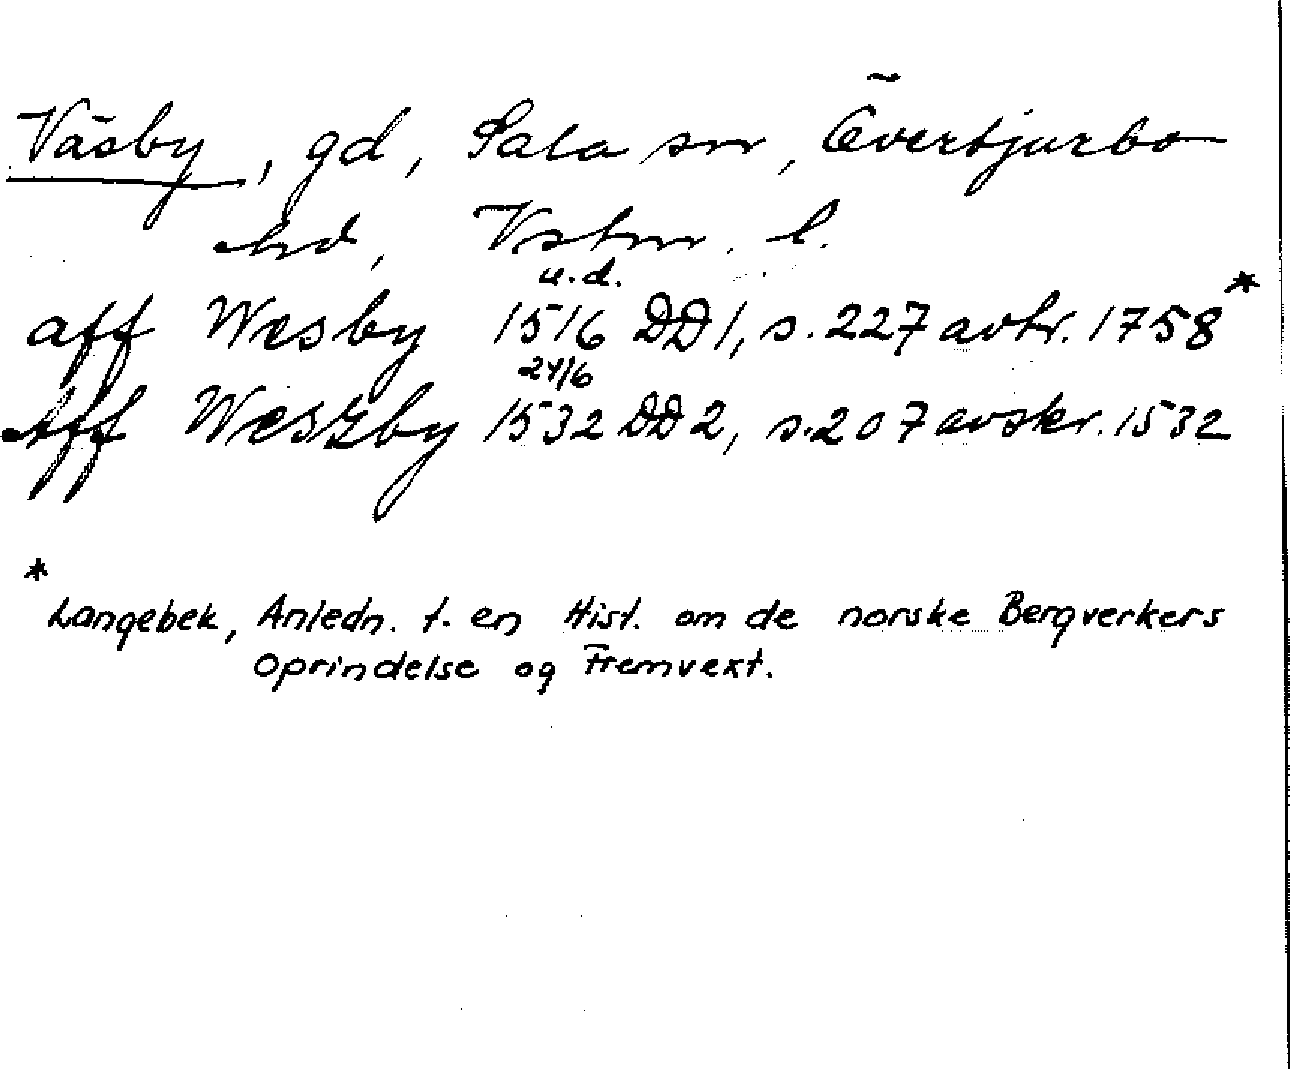 Väsby, gd, Sala sn, Övertjurbo
hd, Vstm. l.
u.d.
aff Wæsby 1516 DD1, s. 227 avtr. 1758*
24/6
Aff Wæszby 1532 DD2, s. 207 avskr. 1532
*
Langebek, Anledn. t. en Hist. om de norske Bergverkers
Oprindelse og Fremvext.